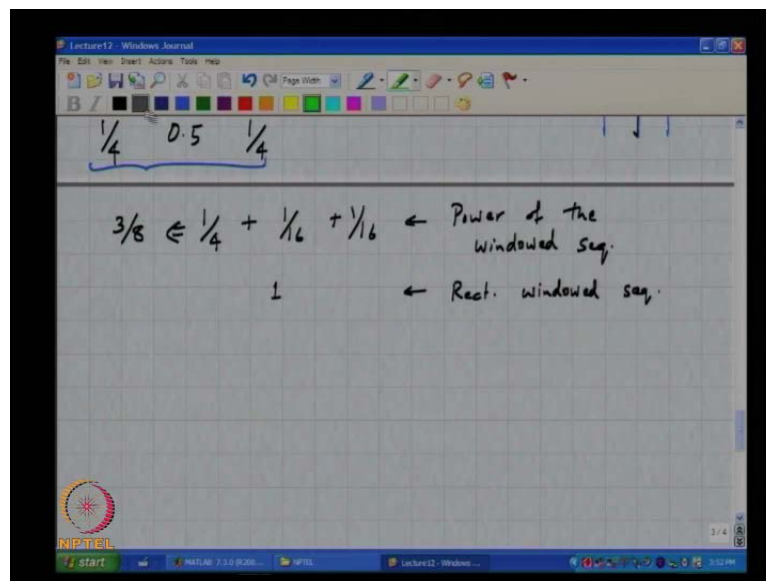 Lecture12 - Windows Journal
File Edit View Insert Actions Tools Help
Page Width
B I
1/4 0.5 1/4
3/8 ⋲ 1/4 + 1/16 + 1/16 ← Power of the
windowed seq.
1 ← Rect. windowed seq.
3/4
NPTEL
start MATLAB 7.3.0 (R200... NPTEL Lecture12 - Windows ... 3:52 PM